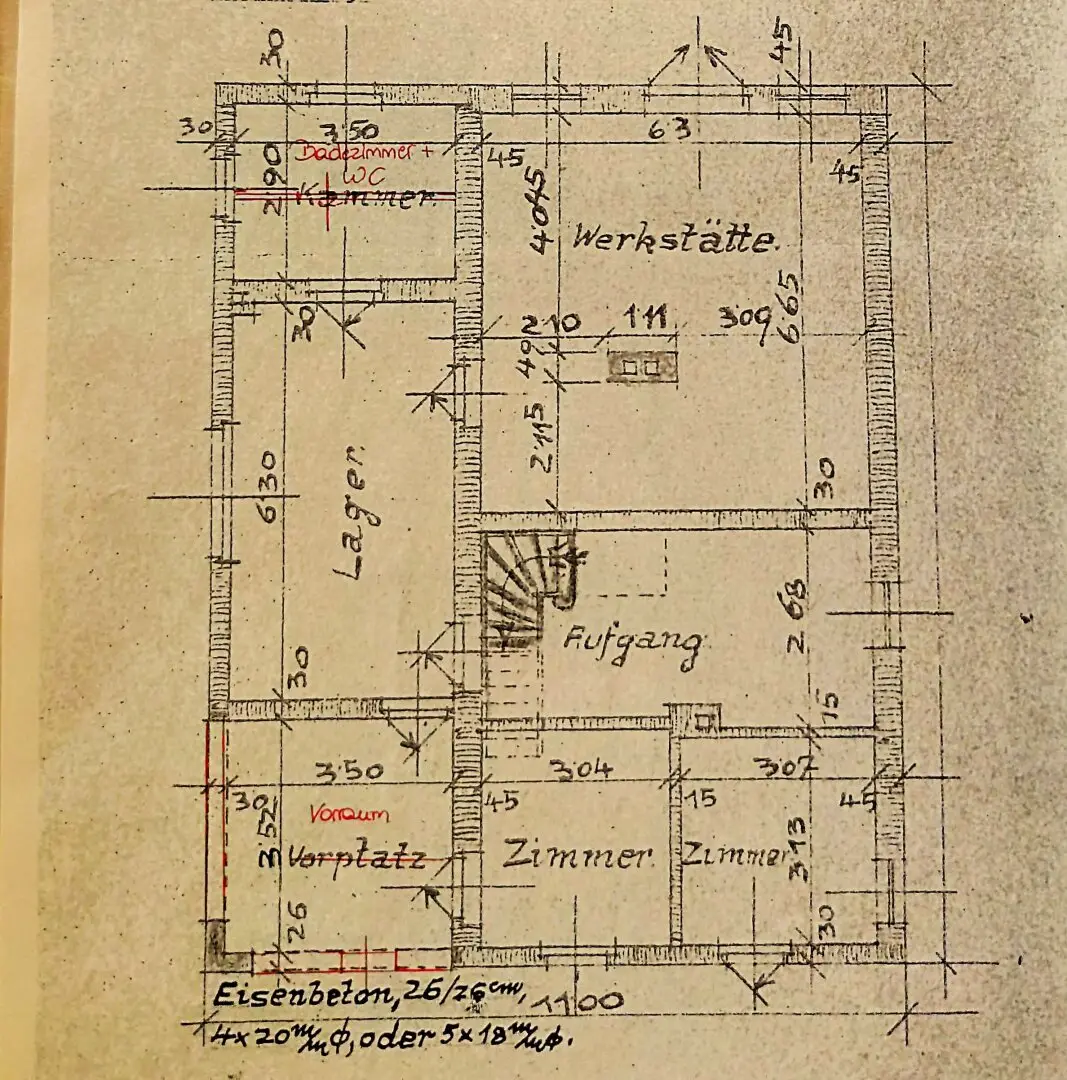 30
45
30
3.50
63
Badezimmer +
WC
45
45
2.90
Kammer.
4.045
Werkstätte.
30
2.10
1.11
3.09
6.65
49
2.115
Lager.
6.30
30
Aufgang.
2.68
30
15
3.50
3.04
3.07
30
45
15
45
Vorraum
3.52
Vorplatz
Zimmer.
Zimmer.
3.13
26
30
Eisenbeton, 26/26 cm,
11.00
4x20 m/m ϕ, oder 5x18 m/m ϕ.